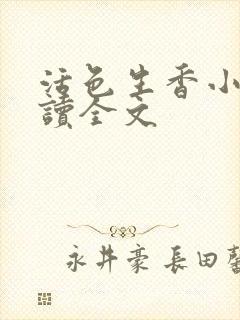 活色生香小
讀全文
永井豪 長田馨